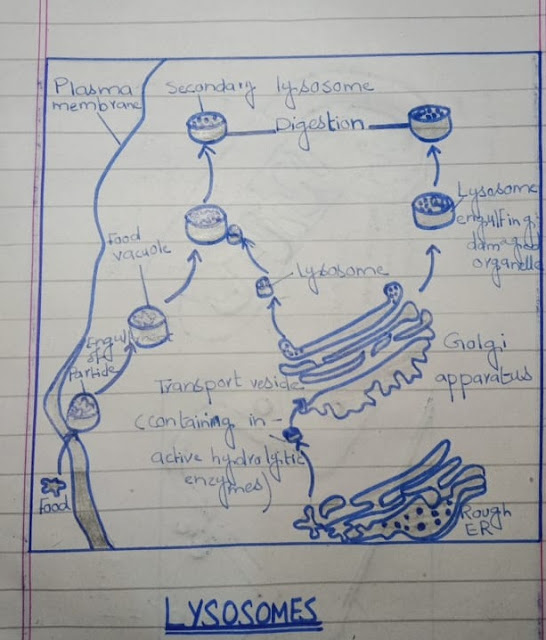 Plasma
membrane
Secondary lysosome
Digestion
Lysosome
engulfing
damaged
organelle
Food
vacuole
Lysosome
Engulf
of
Particle
Golgi
apparatus
Transport vesicle
(containing in-
active hydrolytic
enzy
mes)
Food
Rough
ER
LYSOSOMES